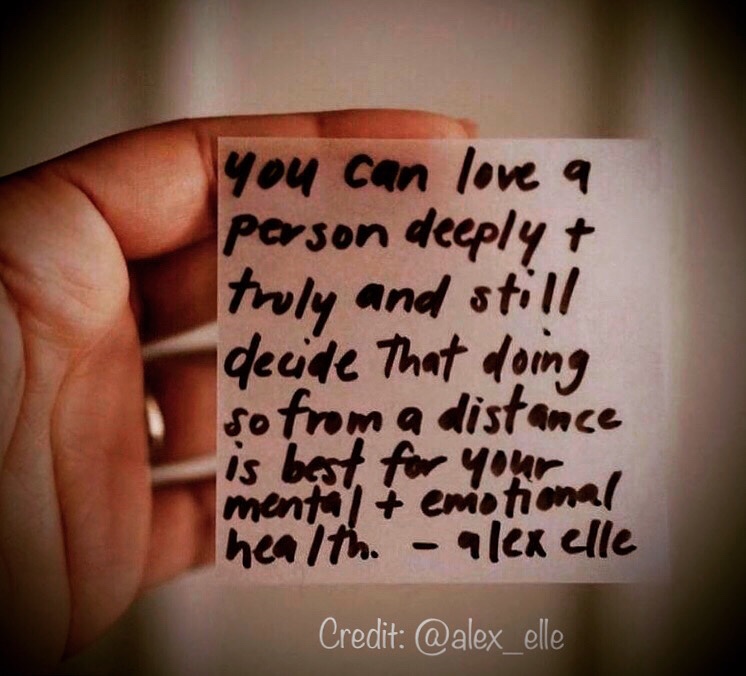 you can love a
person deeply +
truly and still
decide that doing
so from a distance
is best for your
mental + emotional
health. - alex elle
Credit: @alex_elle